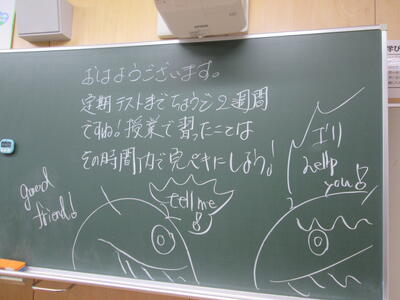 おはようございます。
定期テストまでちょうど2週間
ですね!授業で習ったことは
その時間内で完ペキにしよう!
good
friend!
tell me
!
I'll
hellp
you!